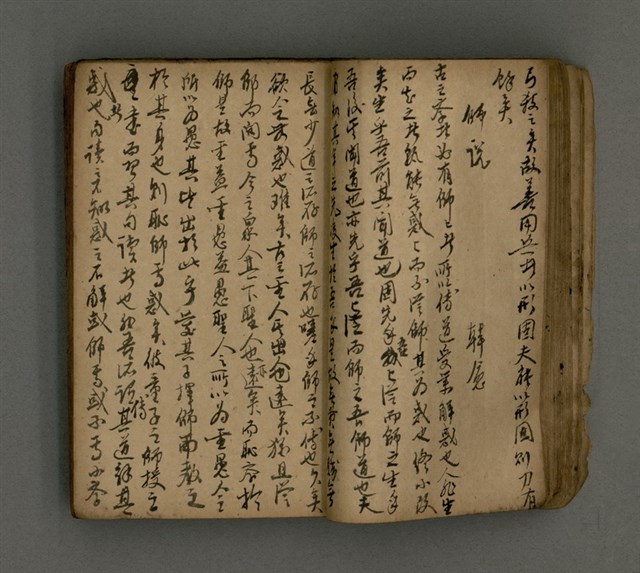 餘矣
師說　韓愈
古之學者必有師師者所以傳道受業解惑也人非生
而知之者孰能無惑惑而不從師其為惑也終不解
矣生乎吾前其聞道也固先乎吾吾從而師之生乎
吾後其聞道也亦先乎吾吾從而師之吾師道也夫
長無少道之所存師之所存也嗟乎師之不傳也久矣
欲人之無惑也難矣古之聖人其出人也遠矣猶且從
師而問焉今之眾人其下聖人也亦遠矣而恥學於
師是故聖益聖愚益愚聖人之所以為聖愚人之
所以為愚其皆出於此乎愛其子擇師而教之
於其身也則恥師焉惑矣彼童子之師授之
書而習其句讀者也非吾所謂傳其道解其
惑者也句讀之不知惑之不解或師焉或不焉小學